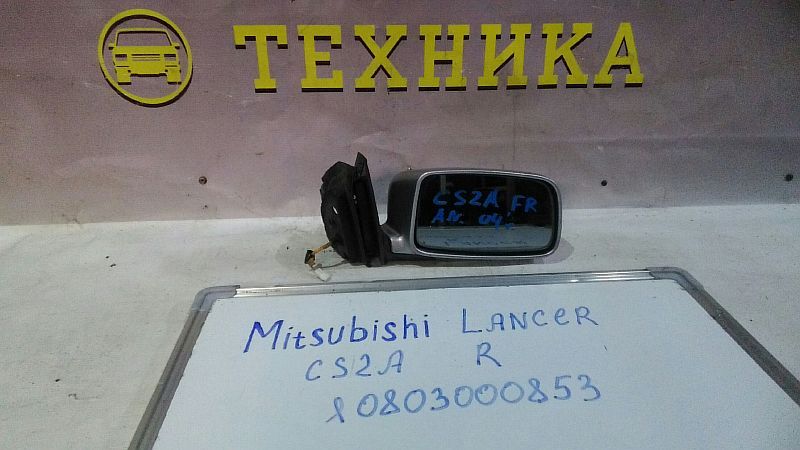 ТЕХНИКА
CS2A FR
04'
Mitsubishi LANCER
CS2A R
10803000853